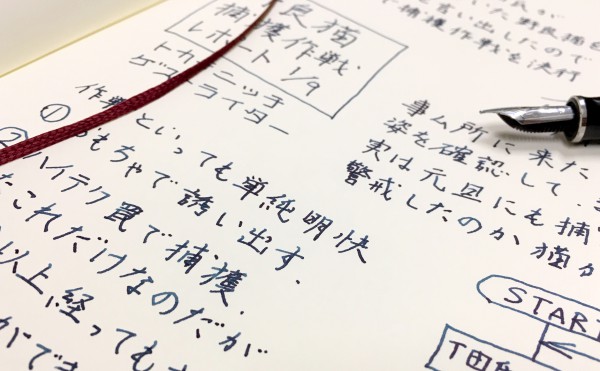 良猫
捕獲作戦
レポート 1/9
ゲストライター
作戦といっても単純明快
① おもちゃで誘い出す.
② ハイテク罠で捕獲.
これだけなのだが
以上経っても
ができ
た野良猫を
言い出したので
で捕獲作戦を決行
事ム所に来た
姿を確認して
実は元旦にも捕
警戒したのか猫が
START
T田